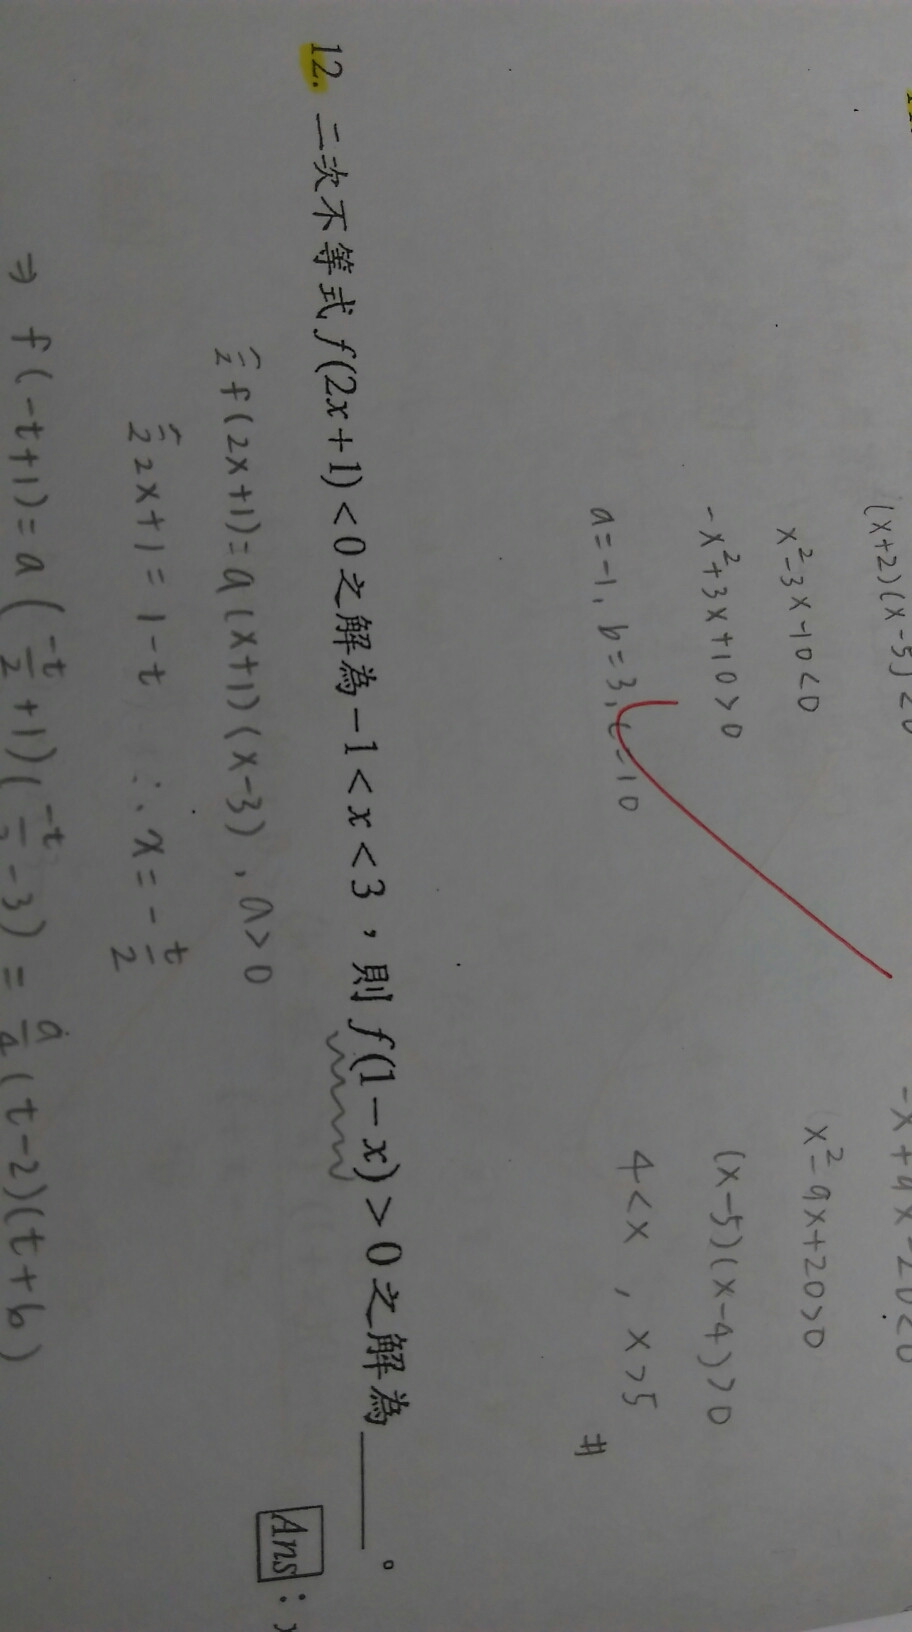 (x+2)(x-5)<0
x²-3x-10<0
-x²+3x+10>0
a=-1, b=3, c=10
x²-9x+20>0
(x-5)(x-4)>0
4<x , x>5 #
12. 二次不等式 f(2x+1)<0之解為-1<x<3,則 f(1-x)>0之解為______。
Ans:
令 f(2x+1)=a(x+1)(x-3), a>0
令 2x+1=1-t ∴ x=-t/2
⇒ f(-t+1)=a(-t/2+1)(-t/2-3)=a/4(t-2)(t+6)